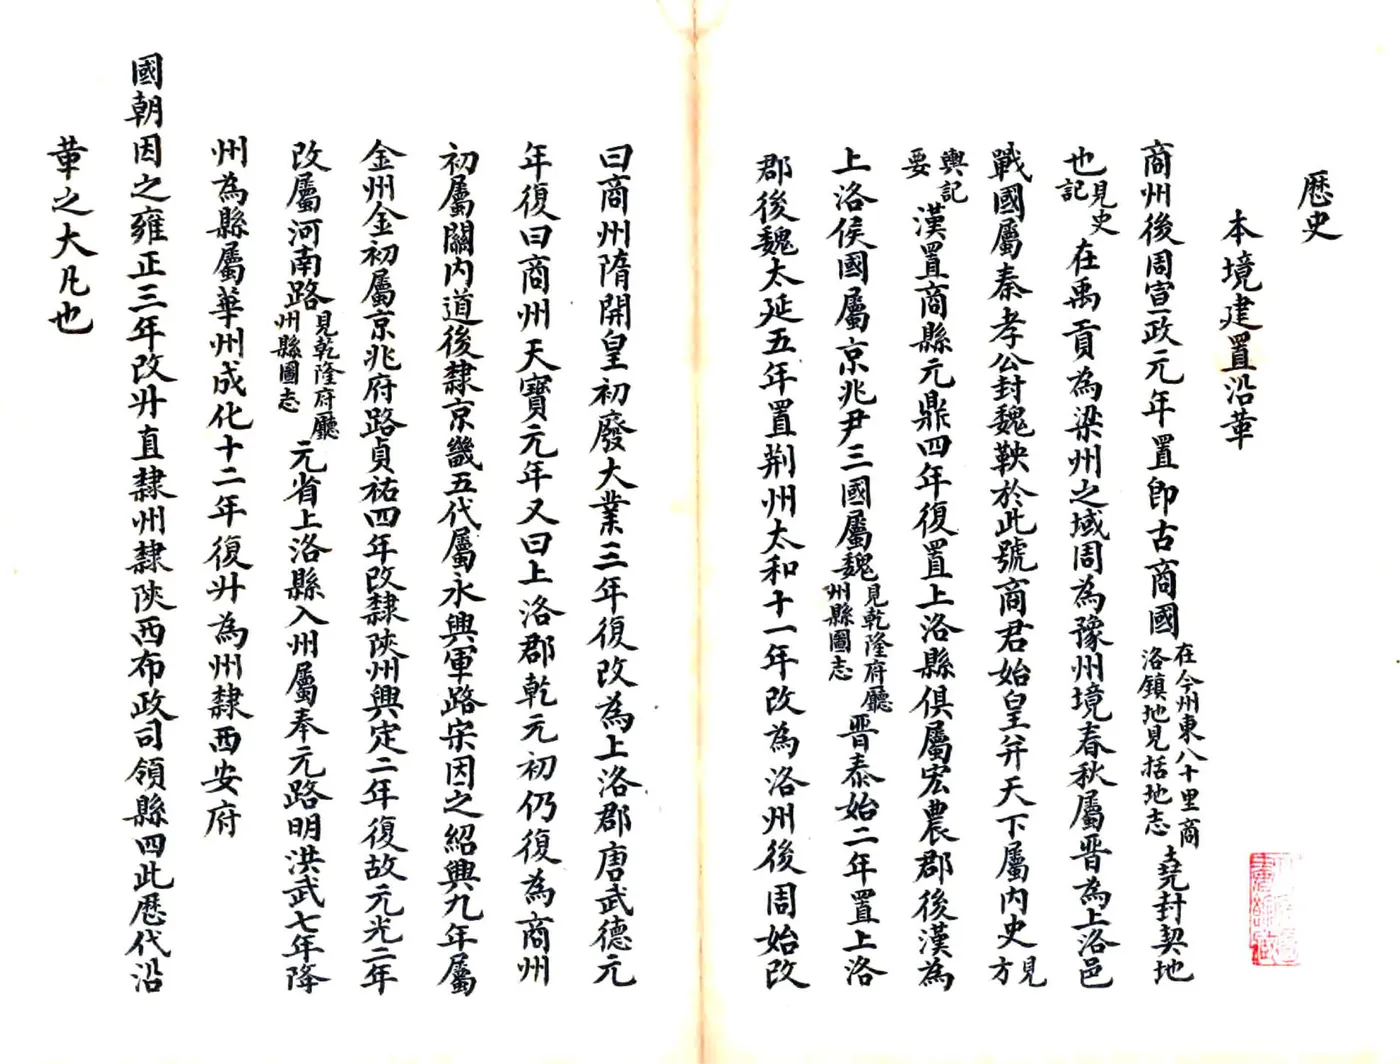 歷史
本境建置沿革
商州後周宣政元年置卽古商國在今州東八十里商洛鎮地見括地志堯封契地
也見史記在禹貢為梁州之域周為豫州境春秋屬晋為上洛邑
戰國屬秦孝公封魏鞅於此號商君始皇幷天下屬内史見方
輿記要漢置商縣元鼎四年復置上洛縣俱屬宏農郡後漢為
上洛侯國屬京兆尹三國屬魏見乾隆府廳州縣圖志晋泰始二年置上洛
郡後魏太延五年置荊州太和十一年改為洛州後周始改
曰商州隋開皇初廢大業三年復改為上洛郡唐武德元
年復曰商州天寶元年又曰上洛郡乾元初仍復為商州
初屬關内道後隸京畿五代屬永興軍路宋因之紹興九年屬
金州金初屬京兆府路貞祐四年改隸陝州興定二年復故元光二年
改屬河南路見乾隆府廳州縣圖志元省上洛縣入州屬奉元路明洪武七年降
州為縣屬華州成化十二年復升為州隸西安府
國朝因之雍正三年改升直隸州隸陝西布政司領縣四此歷代沿
革之大凡也